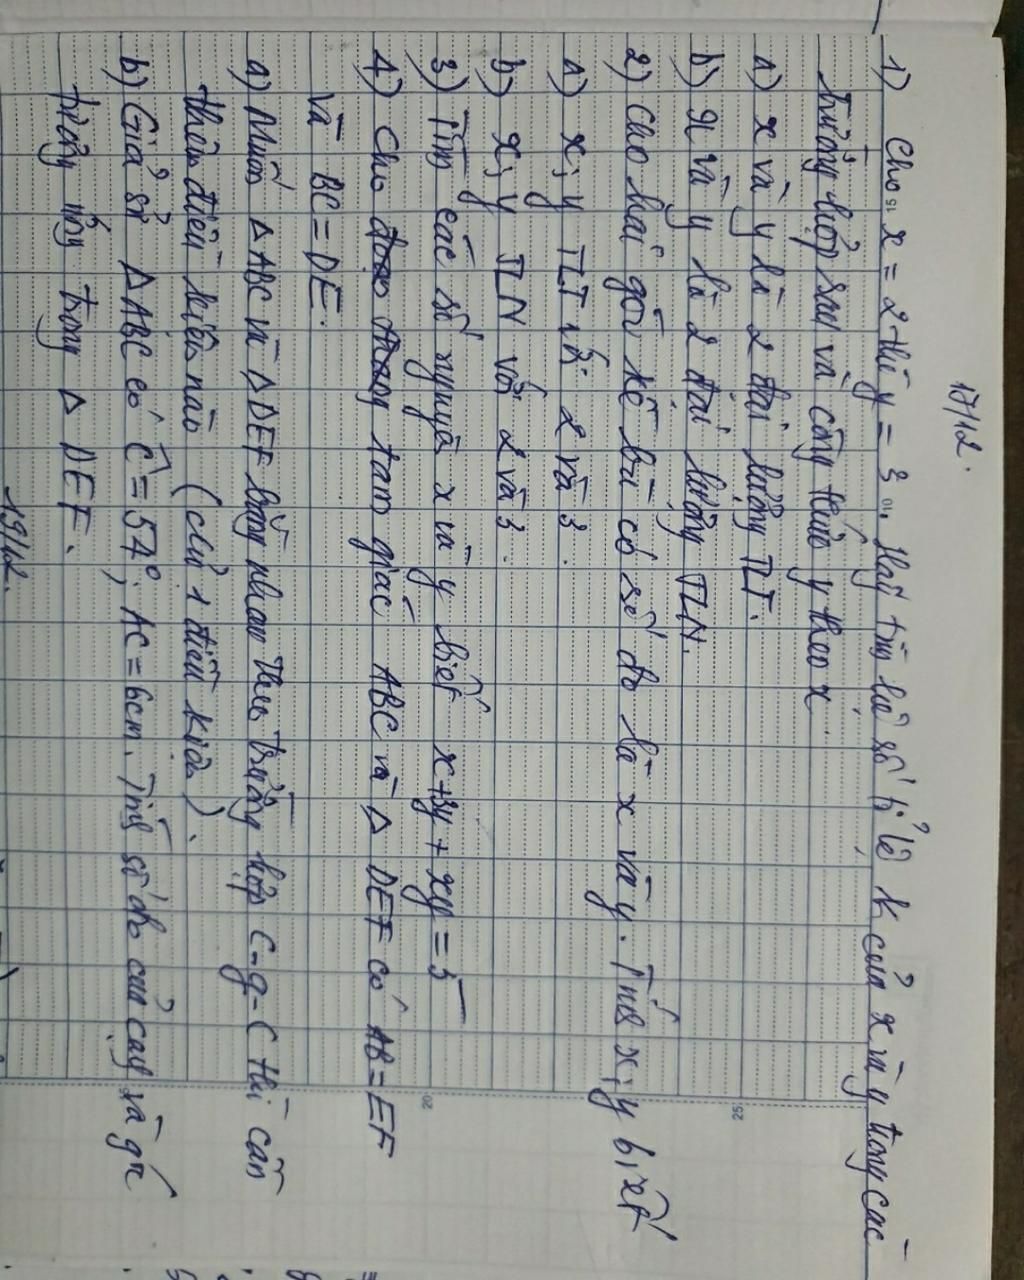 17/12.
1) Cho x = 2 thì y = 3. Hãy tìm hệ số tỉ lệ k của x và y trong các
trường hợp sau và công thức y theo x
a) x và y là 2 đại lượng TLT.
b) x và y là 2 đại lượng TLN.
2) Cho hai góc kề bù có số đo là x và y. Tính x; y biết
a) x; y TLT với 2 và 3.
b) x; y TLN với 2 và 3.
3) Tìm các số nguyên x và y biết x + 3y + xy = 5
4) Cho tam giác ABC và Δ DEF có AB = EF
và BC = DE.
a) Muốn Δ ABC và Δ DEF bằng nhau theo trường hợp c-g-c thì cần
thêm điều kiện nào (chỉ 1 điều kiện).
b) Giả sử Δ ABC có Ĉ = 54°; AC = 6cm. Tính số đo của cạnh và góc
tương ứng trong Δ DEF.
19/12.
25
20
15